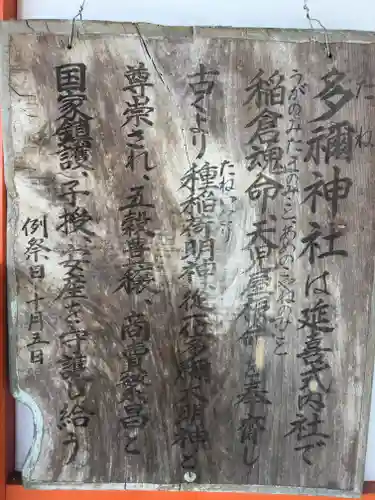 たね
多禰神社は延喜式内社で
うがのみたまのみこと あめのこやねのみこと
稲倉魂命、天児屋根命を奉斎し
たねいなり
古くより種稲荷明神、従一位多禰大明神と
尊崇され、五穀豊穣、商売繁昌と
国家鎮護、子授、安産を守護し給う
例祭日・十月五日